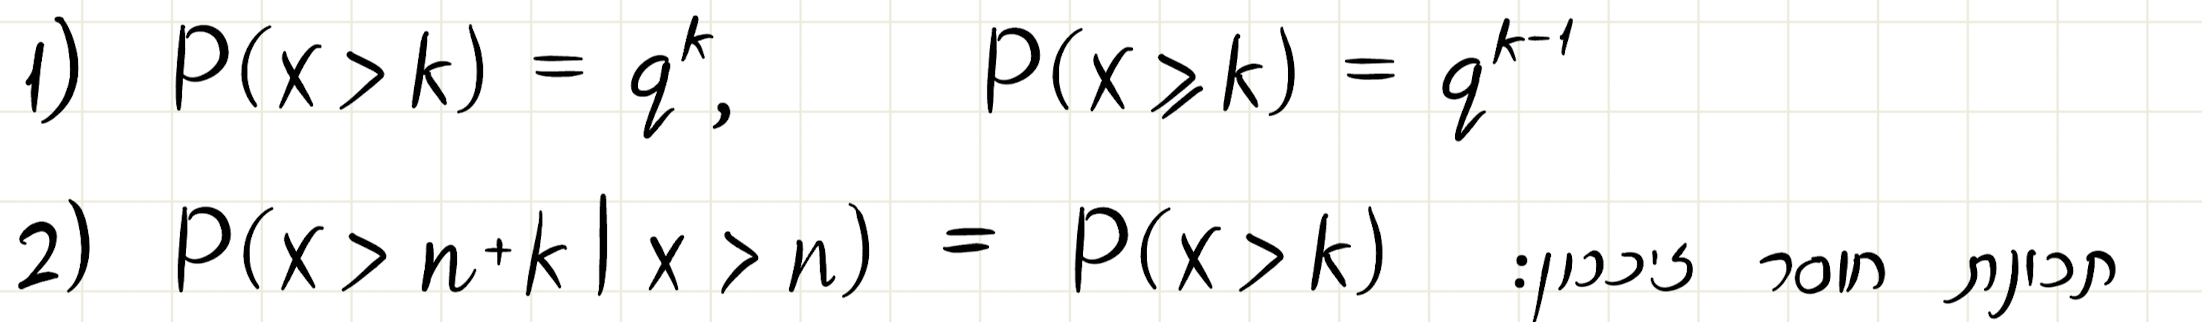 1) P(x>k) = q^k, P(x⩾k) = q^{k-1}
2) P(x>n+k | x>n) = P(x>k) תכונת חוסר זיכרון: